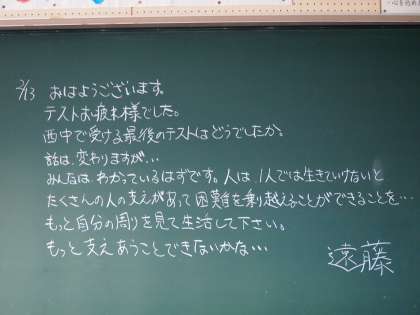 2/13 おはようございます。
テストお疲れ様でした。
西中で受ける最後のテストはどうでしたか。
話は、変わりますが…
みんなは、わかっているはずです。人は、1人では生きていけないと
たくさんの人の支えがあって困難を乗り越えることができることを…
もっと自分の周りを見て生活して下さい。
もっと支えあうことできないかな…
遠藤